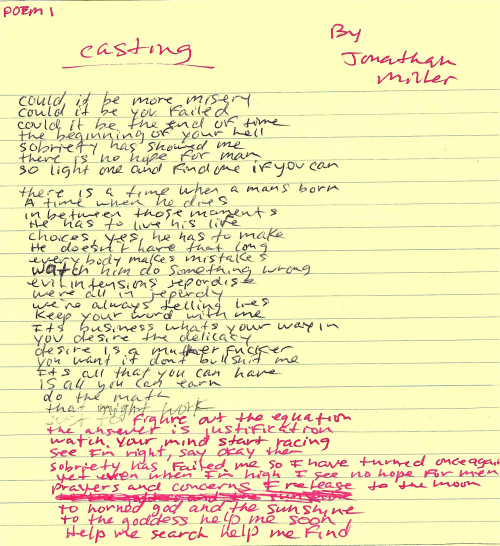 POEM 1
casting
By
Jonathan
Miller
could it be more misery
could it be you failed
could it be the end of time
the beginning of your hell
sobriety has showed me
there is no hope for man
so light one and find me if you can
there is a time when a mans born
A time when he dies
in between those moments
He has to live his life
choices, yes, he has to make
He doesn't have that long
every body makes mistakes
watch him do something wrong
evil intensions jepordise
we're all in jepurdy
we're always telling lies
keep your word with me
Its business whats your way in
you desire the delicacy
desire is a mother fucker
you want it dont bullshit me
Its all that you can have
is all you can earn
do the math
that might work
figure out the equation
the answer is justification
watch your mind start racing
see I'm right, say okay then
sobriety has failed me so I have turned once again
yet even when I'm high I see no hope for men
prayers and concerns I release to the moon
to horned god and the sunshine
to the goddess help me soon
Help me search help me find